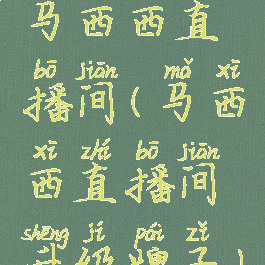 马西西直
bō jiān mǎ xī
播间(马西
xī zhí bō jiān
西直播间
shēng jí pái zǐ
升级牌子)